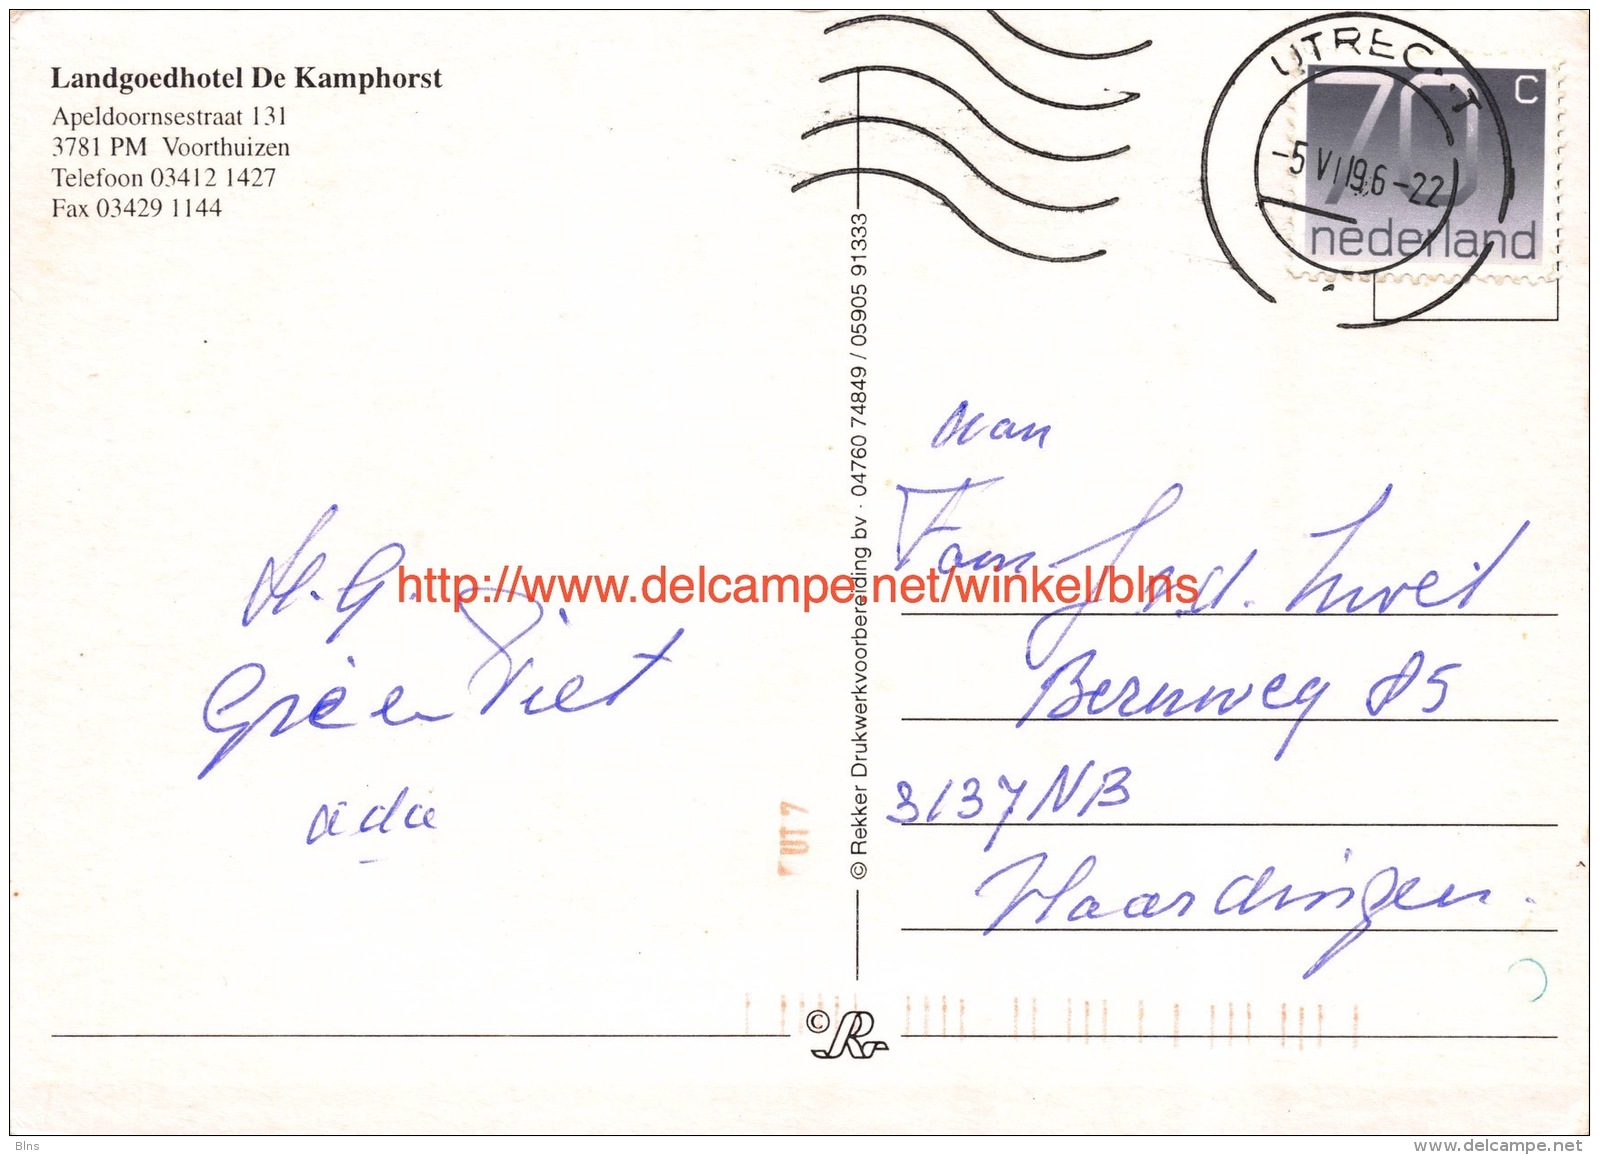 Landgoedhotel De Kamphorst
Apeldoornsestraat 131
3781 PM Voorthuizen
Telefoon 03412 1427
Fax 03429 1144
UTREC T
-5 VI 19 6 -22
70 C
nederland
© Rekker Drukwerkvoorbereiding bv · 04760 74849 / 05905 91333
aan
Fam
Bernweg 85
3137 NB
Vlaardingen.
H. G.
Piet
ada
http://www.delcampe.net/winkel/blns
UT 7
© R
Blns
www.delcampe.net